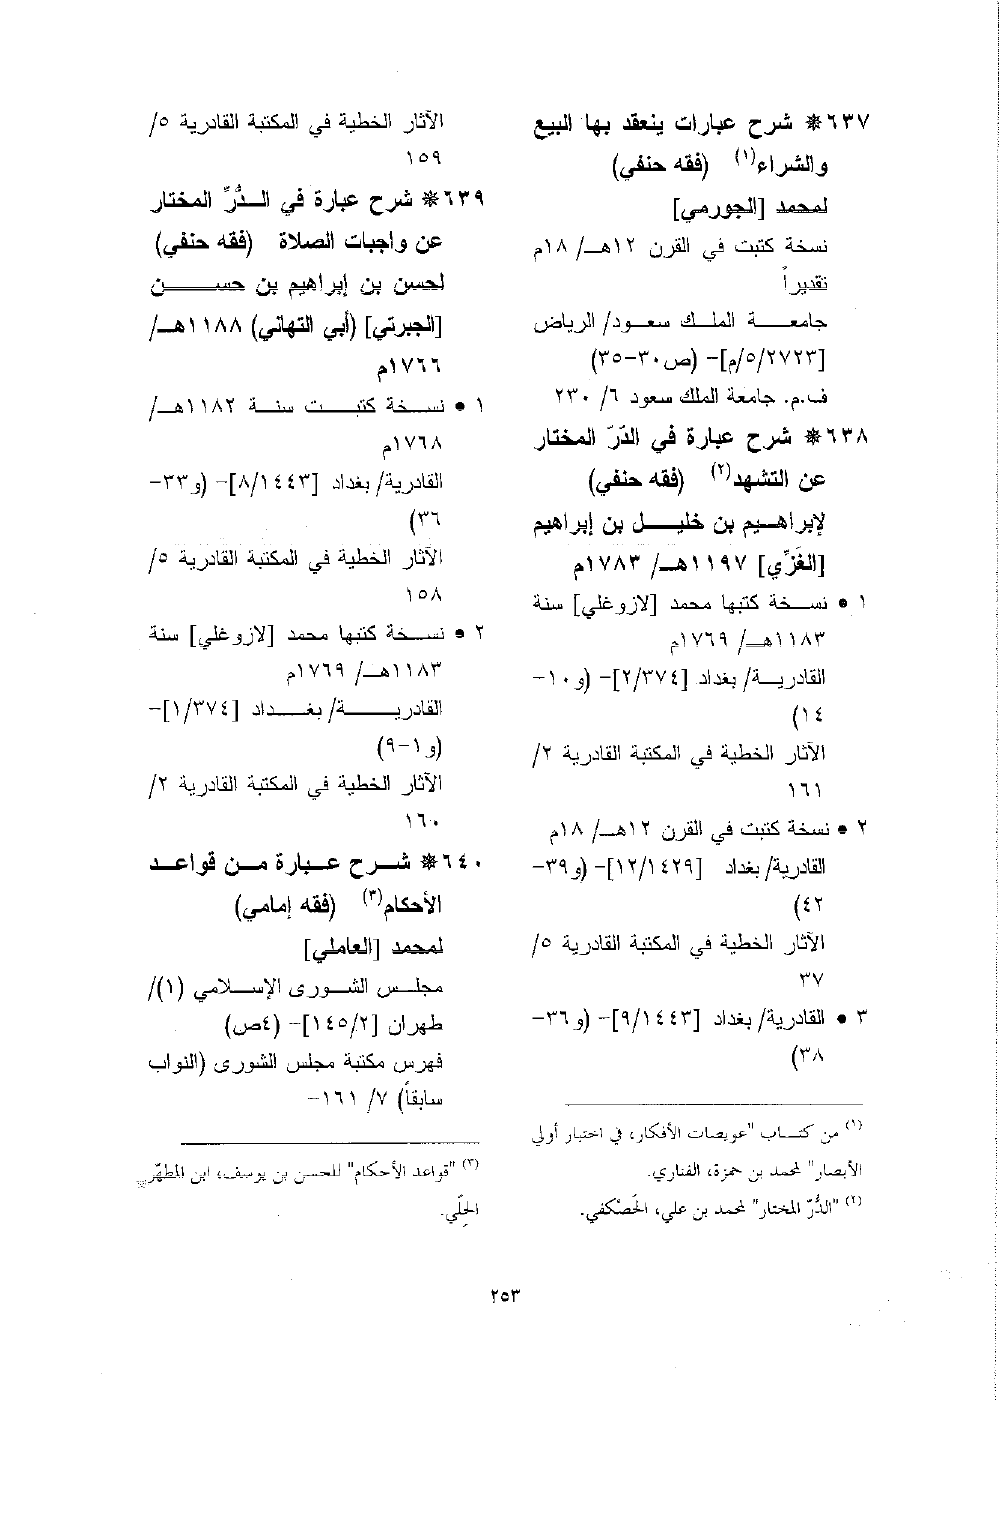 ٦٣٧* شرح عبارات ينعقد بها البيع
والشراء(١) (فقه حنفي)
لمحمد [الجورمي]
نسخة كتبت في القرن ١٢هـ/ ١٨م
تقديراً
جامعة الملك سعود/ الرياض
[٢٧٢٣/٥/م]- (ص٣٠-٣٥)
ف.م. جامعة الملك سعود ٦/ ٢٣٠
٦٣٨* شرح عبارة في الدّرّ المختار
عن التشهد(٢) (فقه حنفي)
لإبراهيم بن خليل بن إبراهيم
[الغَزِّي] ١١٩٧هـ/ ١٧٨٣م
١ • نسخة كتبها محمد [لازوغلي] سنة
١١٨٣هـ/ ١٧٦٩م
القادرية/ بغداد [٢/٣٧٤]- (و١٠-
١٤)
الآثار الخطية في المكتبة القادرية ٢/
١٦١
٢ • نسخة كتبت في القرن ١٢هـ/ ١٨م
القادرية/ بغداد [١٢/١٤٢٩]- (و٣٩-
٤٢)
الآثار الخطية في المكتبة القادرية ٥/
٣٧
٣ • القادرية/ بغداد [٩/١٤٤٣]- (و٣٦-
٣٨)
(١) من كتاب "عويصات الأفكار، في اختبار أولي
الأبصار" لمحمد بن حمزة، الفناري.
(٢) "الدُّرّ المختار" لمحمد بن علي، الحَصْكَفي.
الآثار الخطية في المكتبة القادرية ٥/
١٥٩
٦٣٩* شرح عبارة في الدُّرِّ المختار
عن واجبات الصلاة (فقه حنفي)
لحسن بن إبراهيم بن حسن
[الجبرتي] (أبي التهاني) ١١٨٨هـ/
١٧٦٦م
١ • نسخة كتبت سنة ١١٨٢هـ/
١٧٦٨م
القادرية/ بغداد [٨/١٤٤٣]- (و٣٣-
٣٦)
الآثار الخطية في المكتبة القادرية ٥/
١٥٨
٢ • نسخة كتبها محمد [لازوغلي] سنة
١١٨٣هـ/ ١٧٦٩م
القادرية/ بغداد [١/٣٧٤]-
(و١-٩)
الآثار الخطية في المكتبة القادرية ٢/
١٦٠
٦٤٠* شرح عبارة من قواعد
الأحكام(٣) (فقه إمامي)
لمحمد [العاملي]
مجلس الشورى الإسلامي (١)/
طهران [١٤٥/٢]- (٤ص)
فهرس مكتبة مجلس الشورى (النواب
سابقاً) ٧/ ١٦١-
(٣) "قواعد الأحكام" للحسن بن يوسف، ابن المطهّر
الحِلّي.
٢٥٣